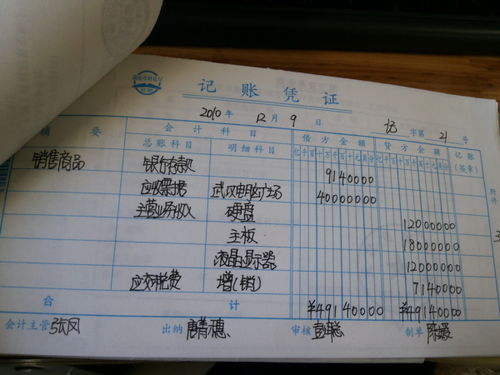 记 账 凭 证
2010 年 12 月 9 日 记 字第 21 号
摘 要 会 计 科 目 借 方 金 额 贷 方 金 额 记账
总账科目 明细科目 (签章)
销售商品 银行存款 9140000
应收票据 40000000
主营业务收入 硬盘 12000000
主板 18000000
液晶显示器 12000000
应交税费 增(销) 7140000
合 计 ¥49140000 ¥49140000
会计主管 张凤 出纳 唐菁穗 审核 制单